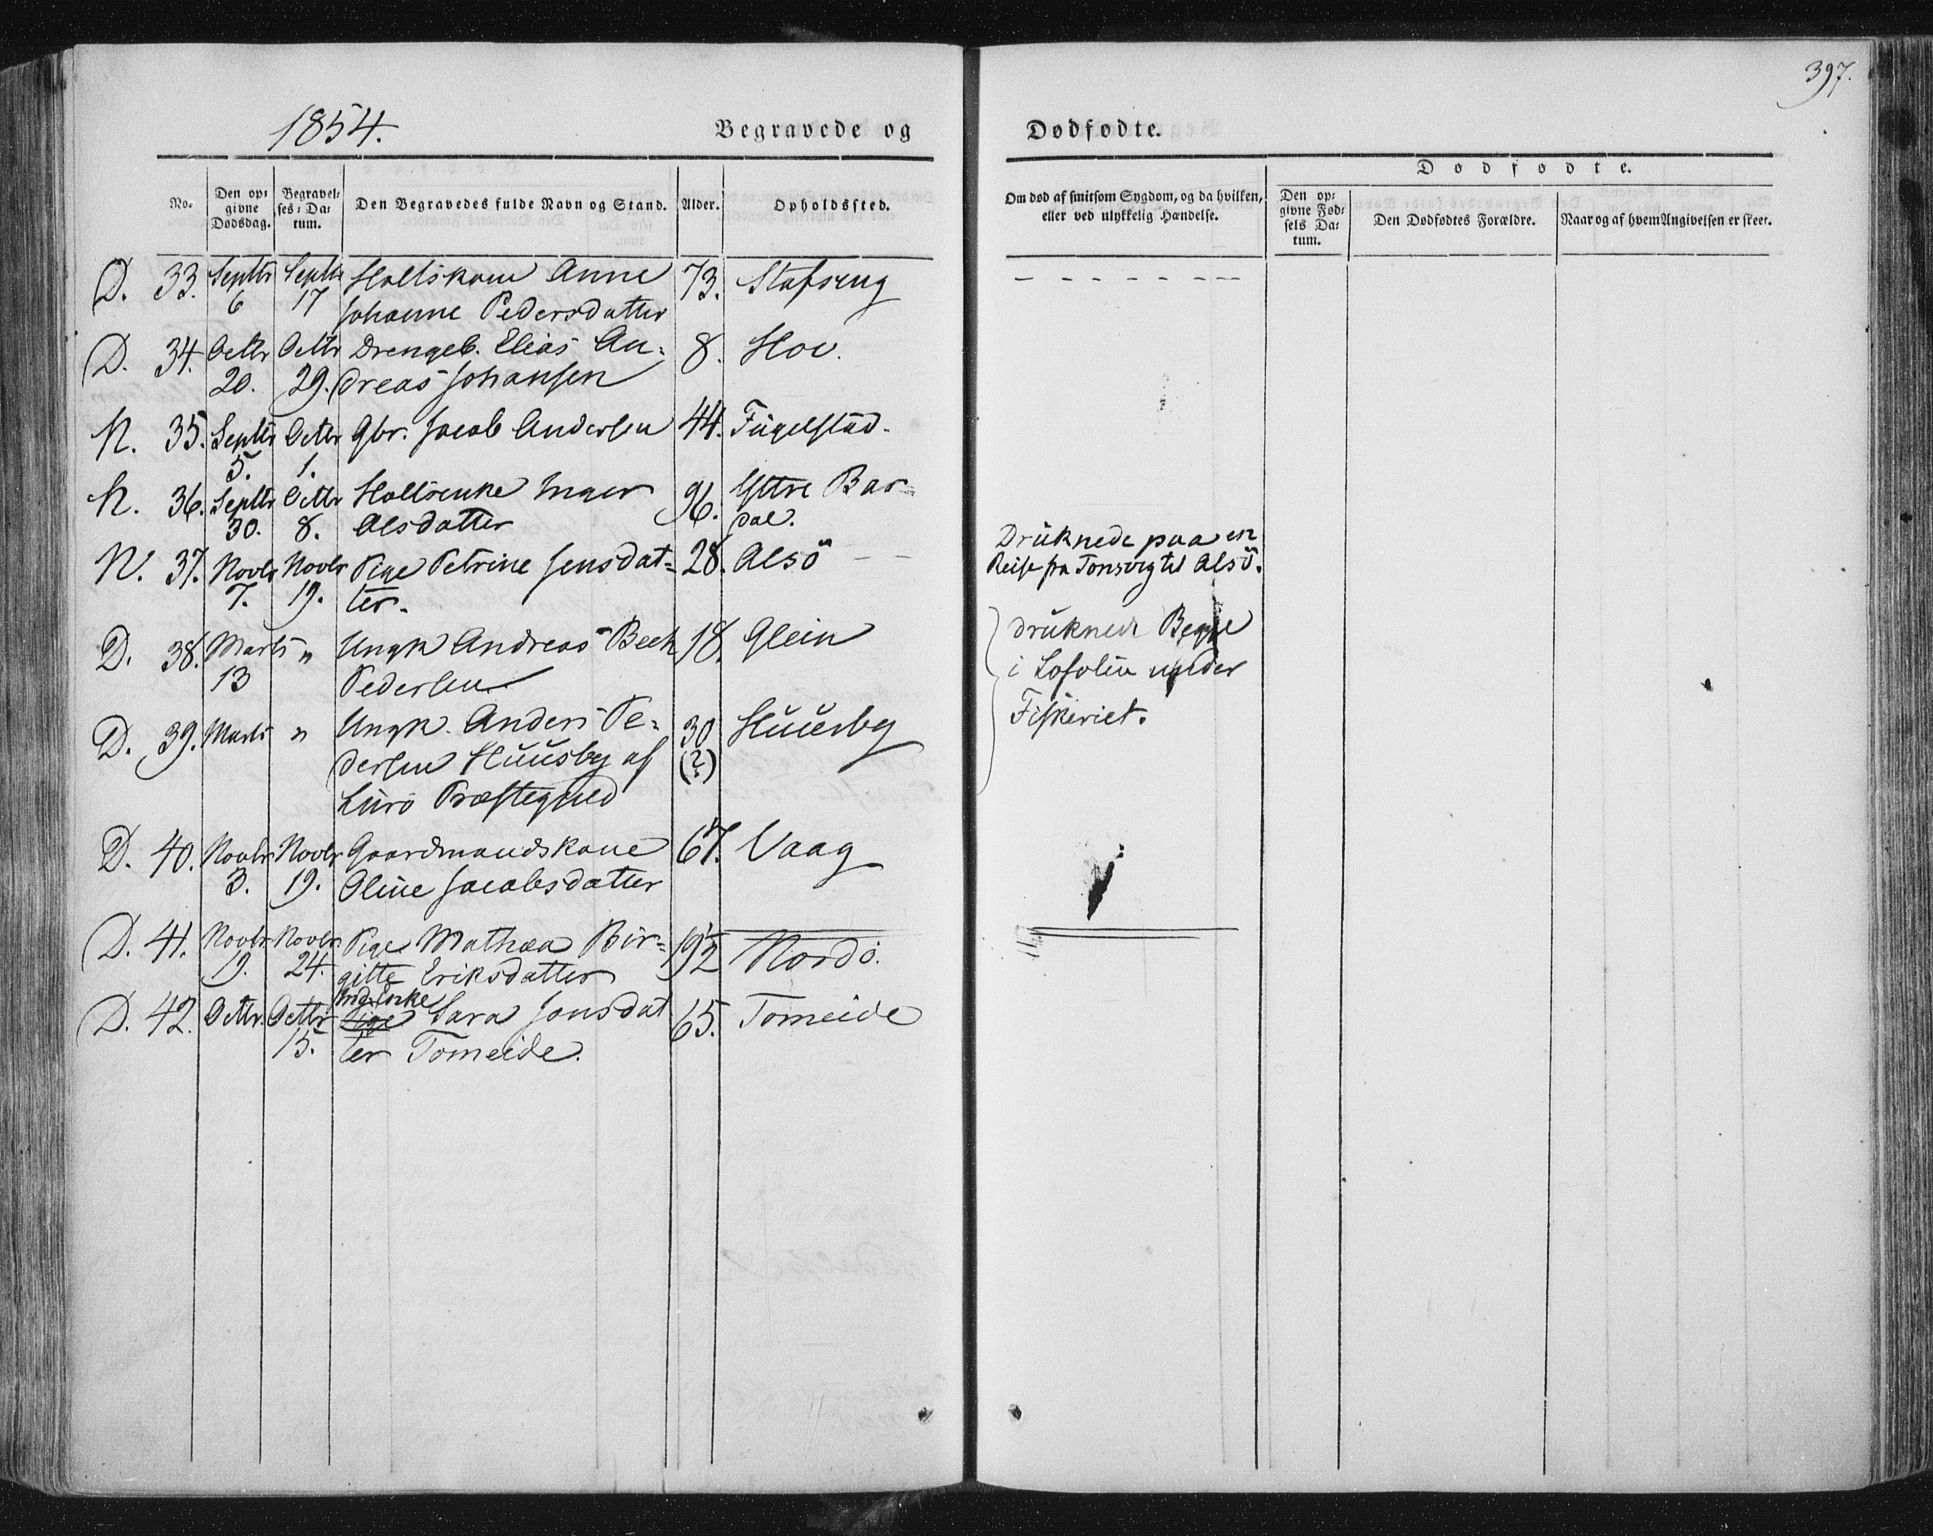 397.
1854.
Begravede og
Dødfødte.
No.
Den op-
givne
Dødsdag.
Begravel-
ses-Da-
tum.
Den Begravedes fulde Navn og Stand.
Alder.
Opholdssted.
Om død af smitsom Sygdom, og da hvilken,
eller ved ulykkelig Hændelse.
Dødfødte.
Den op-
givne Fød-
sels Da-
tum.
Den Dødfødtes Forældre.
Naar og af hvem Angivelsen er skeet.
D. 33. Septbr Septbr Holtskone Anne 73. Stafseng
6 17 Johanne Pedersdatter
D. 34. Octbr Octbr Drengeb. Elias An- 8. Hov.
20. 29. dreas Johansen
N. 35. Septbr Octbr Gbr. Jacob Andersen 44. Fugelstad.
5. 1.
N. 36. Septbr Octbr Inger 96. Yttre Bar-
30. 8. Olsdatter dal.
Druknede paa en
N. 37. Novbr Novbr Pige Petrine Jensdat- 28. Alsö
Reise fra til Alsö.
7. 19. ter.
D. 38. Marts " Ungk Andreas Bech 18. Glein
druknede Begge
13 Pedersen
i Lofoten under
Fiskeriet.
D. 39. Marts " Ungk. Anders Pe- 30 Huusby
dersen Huusby af (?)
Lurö Præstegjeld
D. 40. Novbr Novbr Gaardmandskone 67. Vaag
3. 19. Oline Jacobsdatter
D. 41. Novbr. Novbr. Pige Mathea Bir- Nordö.
19. 24. gitte Eriksdatter
D. 42. Octbr. Octbr Pige Sara Jonsdat 65. Tomeide
15. ter Tomeide.